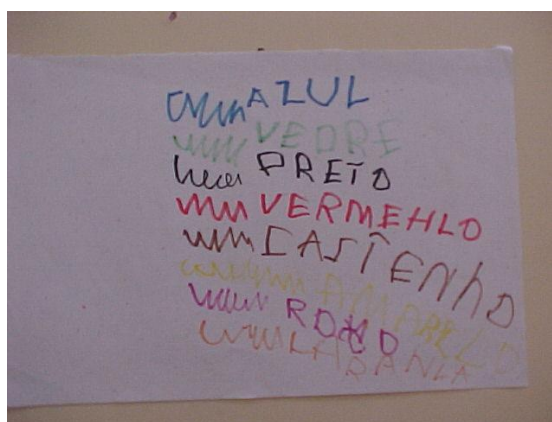 AZUL
VEDRE
PRETO
VERMEHLO
CASTENHO
AMARELO
ROXO
LARANLA